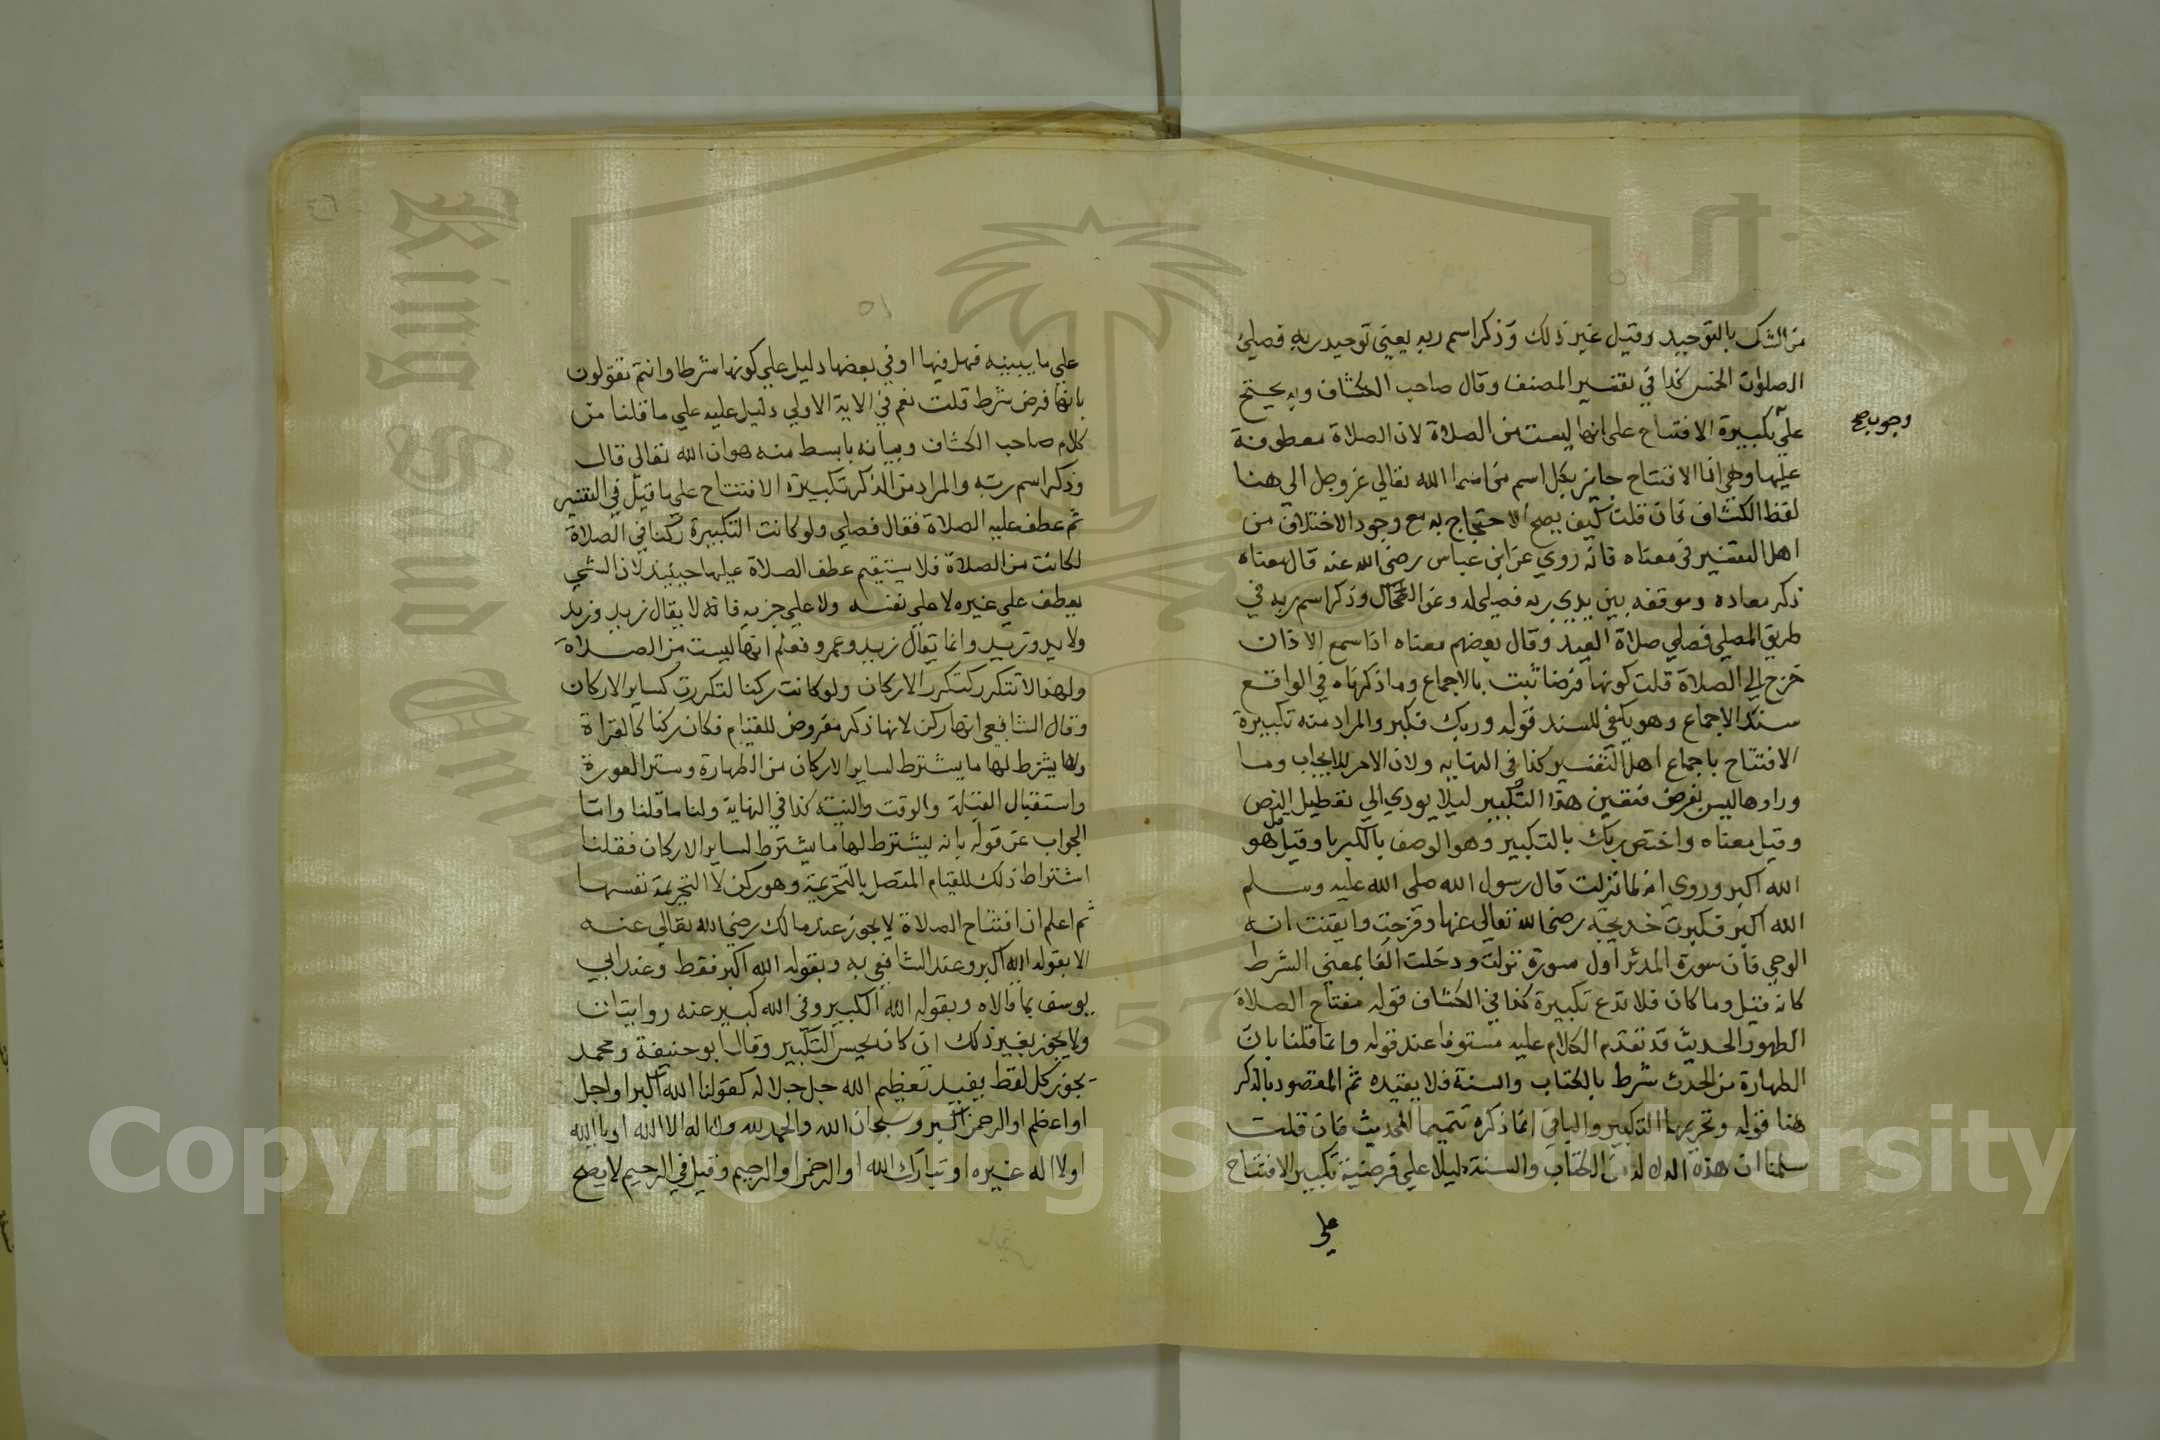 من الشك بالتوحيد وقيل غير ذلك وذكر اسم ربه يعني توحيد ربه فصلى
الصلوات الخمس كذا في تفسير المصنف وقال صاحب الكشاف وبه يحتج
على تكبيرة الافتتاح على انها ليست من الصلاة لان الصلاة معطوفة
وجوب صح
عليها وعلى ان الافتتاح جائز بكل اسم من اسما الله تعالي عز وجل الى هنا
لفظ الكشاف فان قلت كيف يصح الاحتجاج به مع وجود الاختلاف من
اهل التفسير في معناه فانه روي عن ابن عباس رضي الله عنه قال معناه
ذكر معاده وموقفه بين يدي ربه فصلى له وعن الضحاك وذكر اسم ربه في
طريق المصلي فصلي صلاة العيد وقال بعضهم معناه اذا سمع الاذان
خرج الي الصلاة قلت كونها فرضا ثبت بالاجماع وما ذكرناه في الواقع
سند الاجماع وهو يكفي للسند قوله وربك فكبر والمراد منه تكبيرة
الافتتاح باجماع اهل التفسير كذا في النهايه ولان الامر للايجاب وما
وراوها ليس بفرض فتعين هذا التكبير ليلا يودي الي تعطيل النص
وقيل معناه واختص ربك بالتكبير وهو الوصف بالكبريا وقيل هو
الله اكبر وروي انه لما نزلت قال رسول الله صلى الله عليه وسلم
الله اكبر فكبرت خديجة رضي الله تعالى عنها وفرحت وايقنت انه
الوحي فان سورة المدثر اول سورة نزلت ودخلت الفا بمعني الشرط
كانه قيل وما كان فلا تدع تكبيره كذا في الكشاف قوله مفتاح الصلاة
الطهور الحديث قد تقدم الكلام عليه مستوفا عند قوله وانما قلنا بان
الطهارة من الحدث شرط بالكتاب والسنة فلا يعيده ثم المقصود بالذكر
هنا قوله وتحريمها التكبير والباقي انما ذكره تتميما للحديث فان قلت
سلمنا ان هذه الدلائل من الكتاب والسنة دليلا على فرضية تكبير الافتتاح
على
٥١
على ما يبينه فهل فيها او في بعضها دليل علي كونها شرطا وانتم تقولون
بانها فرض شرط قلت نعم في الاية الاولي دليل عليه علي ما قلنا من
كلام صاحب الكشاف وبيانه بابسط منه هو ان الله تعالي قال
وذكر اسم ربه والمراد من الذكر تكبيرة الافتتاح علي ما قيل في التفسير
ثم عطف عليه الصلاة فقال فصلي ولو كانت التكبيرة ركنا في الصلاة
لكانت من الصلاة فلا يستقيم عطف الصلاة عليها حينئذ لان الشي
يعطف علي غيره لا علي نفسه ولا علي جزيه فانه لا يقال زيد وزيد
ولا يد وزيد وانما يقال زيد وعمرو فعلم انها ليست من الصلاة
ولهذا لا تتكرر كتكرر الاركان ولو كانت ركنا لتكررت كساير الاركان
وقال الشافعي انها ركن لانها ذكر مفروض للقيام فكان ركنا كالقراة
ولهذا يشترط لها ما يشترط لساير الاركان من الطهارة وستر العورة
واستقبال القبلة والوقت والنية كذا في النهاية ولنا ما قلنا واما
الجواب عن قوله بانه يشترط لها ما يشترط لساير الاركان فقلنا
اشتراط ذلك للقيام المتصل بالتحريمة وهو ركن لا التحريمة نفسها
ثم اعلم ان افتتاح الصلاة لا يجوز عند مالك رضي الله تعالي عنه
الا بقوله الله اكبر وعند الشافعي به وبقوله الله الاكبر فقط وعند ابي
يوسف بما قالاه وبقوله الله الكبير وفي الله كبير عنه روايتان
ولا يجوز بغير ذلك ان كان يحسن التكبير وقال ابو حنيفة ومحمد
يجوز كل لفظ يفيد تعظيم الله جل جلاله كقولنا الله اكبر او اجل
او اعظم او الرحمن اكبر وسبحان الله والحمد لله ولا اله الا الله او يا الله
او لا اله غيره او تبارك الله او الرحمن او الرحيم وقيل في الرحيم لا يصح